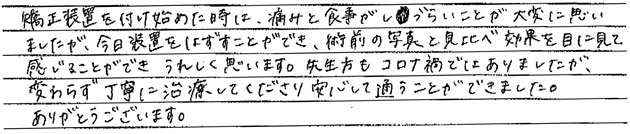 矯正装置を付け始めた時は、痛みと食事がしづらいことが大変に思い
ましたが、今日装置をはずすことができ、術前の写真と見比べ効果を目に見て
感じることができ うれしく思います。先生方も コロナ禍ではありましたが、
変わらず丁寧に治療してくださり安心して通うことができました。
ありがとうございます。